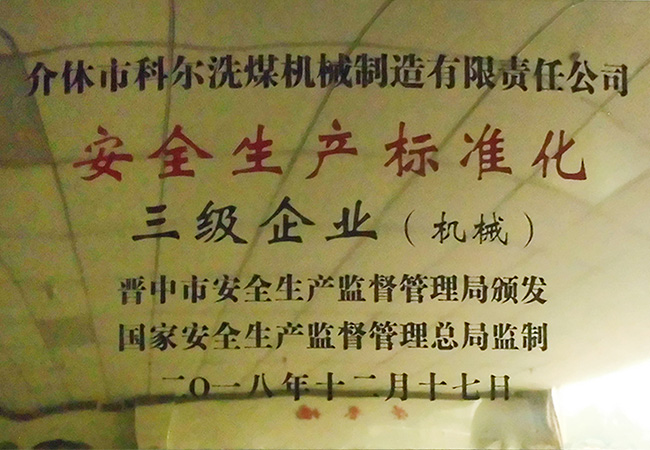 介休市科尔洗煤机械制造有限责任公司
安全生产标准化
三级企业（机械）
晋中市安全生产监督管理局颁发
国家安全生产监督管理总局监制
二〇一八年十二月十七日